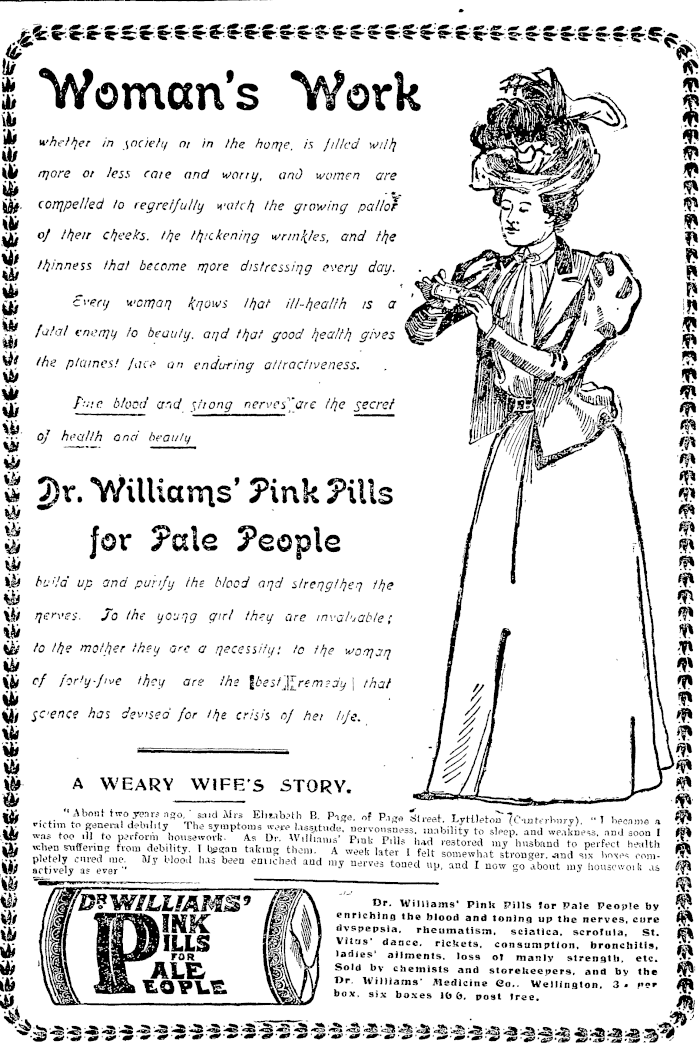 Woman's Work
whether in society or in the home, is filled with
more or less care and worry, and women are
compelled to regretfully watch the growing pallor
of their cheeks, the thickening wrinkles, and the
thinness that become more distressing every day.
Every woman knows that ill-health is a
fatal enemy to beauty, and that good health gives
the plainest face an enduring attractiveness.
Pure blood and strong nerves are the secret
of health and beauty
Dr. Williams' Pink Pills
for Pale People
build up and purify the blood and strengthen the
nerves. To the young girl they are invaluable;
to the mother they are a necessity; to the woman
of forty-five they are the best remedy that
science has devised for the crisis of her life.
A WEARY WIFE'S STORY.
"About two years ago," said Mrs Elizabeth B. Page, of Page Street, Lyttleton (Canterbury), "I became a
victim to general debility The symptoms were lassitude, nervousness, inability to sleep, and weakness, and soon I
was too ill to perform housework. As Dr. Williams' Pink Pills had restored my husband to perfect health
when suffering from debility, I began taking them. A week later I felt somewhat stronger, and six boxes com-
pletely cured me. My blood has been enriched and my nerves toned up, and I now go about my housework as
actively as ever"
DR WILLIAMS'
PINK
PILLS
FOR
PALE
PEOPLE
Dr. Williams' Pink Pills for Pale People by
enriching the blood and toning up the nerves, cure
dyspepsia, rheumatism, sciatica, scrofula, St.
Vitus' dance, rickets, consumption, bronchitis,
ladies' ailments, loss of manly strength, etc.
Sold by chemists and storekeepers, and by the
Dr. Williams' Medicine Co., Wellington, 3 - per
box, six boxes 16 6, post free.